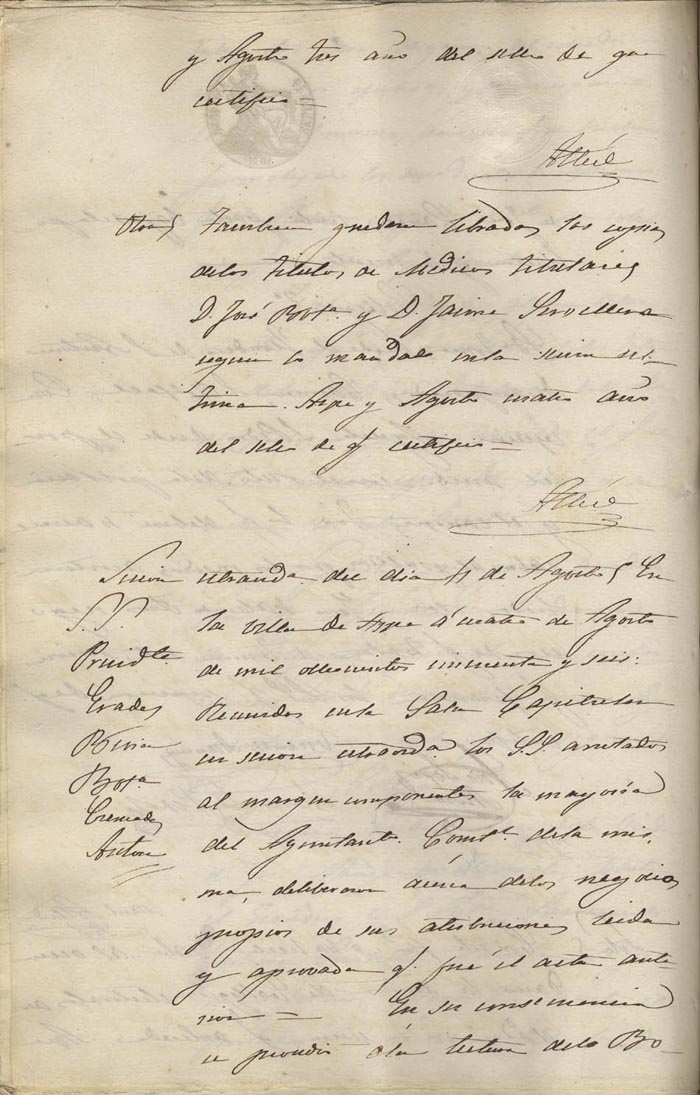 y Agosto tres año del sello de que
certifico =
Otra} Tambien quedan libradas las copias
de los titulos de Medicos titulares
D. José Bot.ª y D. Jaime
segun lo mandado en la sesion ul-
tima. Aspe y Agosto cuatro año
del sello de q.e certifico =
Sesion extraorda. del dia 4 de Agosto} En
S.S.
la villa de Aspe á cuatro de Agosto
Presid.te
de mil ochocientos cincuenta y seis:
Erades
Reunidos en la Sala Capitular
en sesion extraorda. los S.S. anotados
Bot.ª
al margen componentes la mayoria
Cremades
del Ayuntam.to Const.l de la mis-
Anton
ma, deliberaron acerca de los negocios
propios de sus atribuciones leida
y aprovada q.e fué el acta ante-
rior = En su consecuencia
se procedio a la lectura de los Bo-